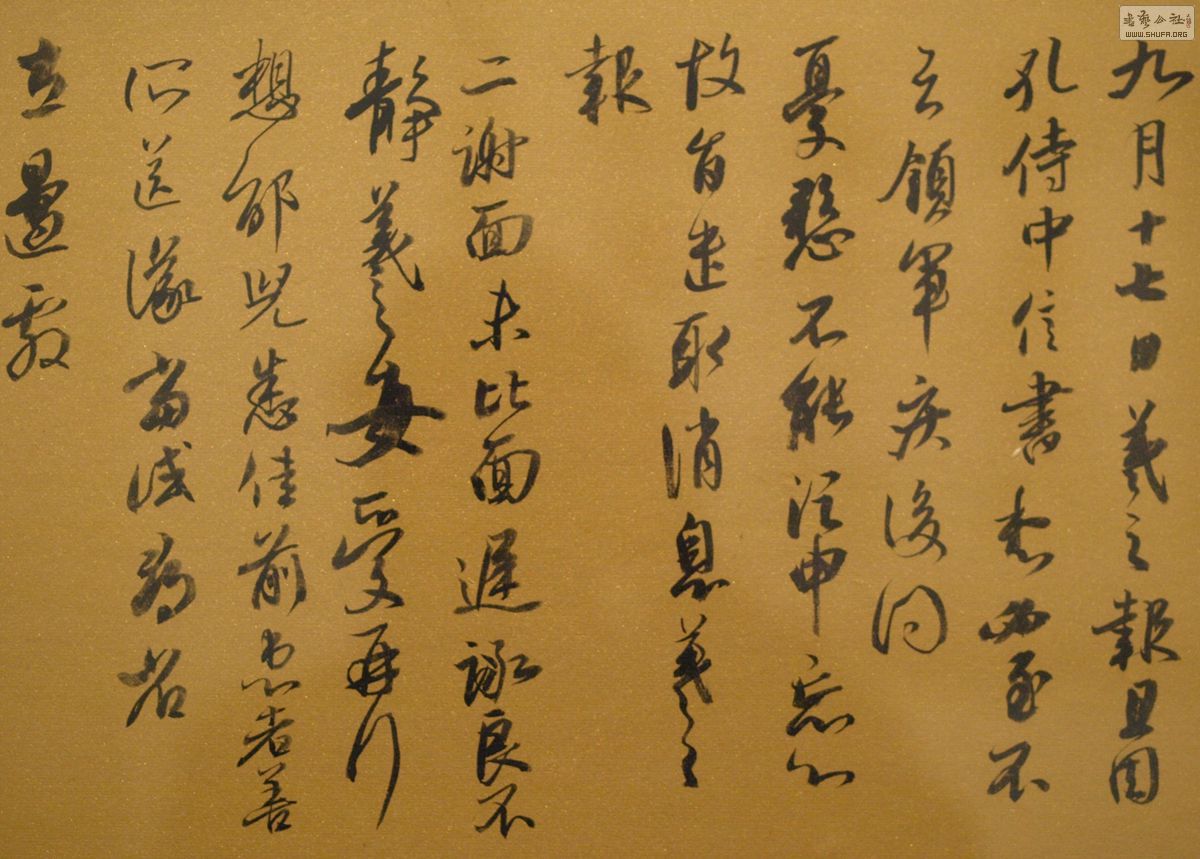 九月十七日羲之報且因
孔侍中信書想必至不
知領軍疾後問
憂懸不能須臾忘心
故旨遣取消息羲之
報
二謝面未比面遲詠良不
靜羲之女愛再拜
想邰兒悉佳前患者善
所送議當試尋省
左邊劇
書藝公社
WWW.SHUFA.ORG